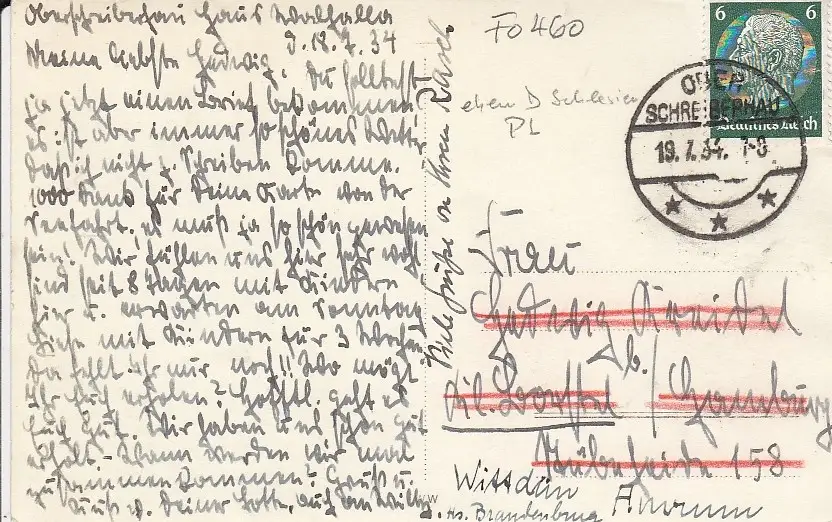 Oberschreiberhau Haus Walhalla
d. 18. 7. 34
Meine liebste Hedwig. Du solltest
ja jetzt einen Brief bekommen,
es ist aber immer so schönes Wetter
daß ich nicht z. Schreiben komme.
1000 Dank für Deine Karte von der
Seefahrt, es muß ja so schön gewesen
sein! Wir fühlen uns hier sehr wohl
sind seit 8 Tagen mit Kindern
hier u. erwarten am Sonntag
mit Kindern für 3 Wochen
da fehlt Ihr nur noch!! Wo mögt
Ihr Euch erholen? Hofftl. geht es
Euch gut. Wir haben uns schon gut
erholt - Wann werden wir mal
zusammen kommen? Gruß u.
Kuß v. Deiner Lotte, auch an Willy
Viele Grüße v. Ihrem
Fo 460
ehem D Schlesien
PL
6 6
Deutsches Reich
OBER
SCHREIBERHAU
19. 7. 34. 7-8
Frau
Hedwig
b.
/ Hamburg
158
Wittdün
Amrum
Hs. Brandenburg